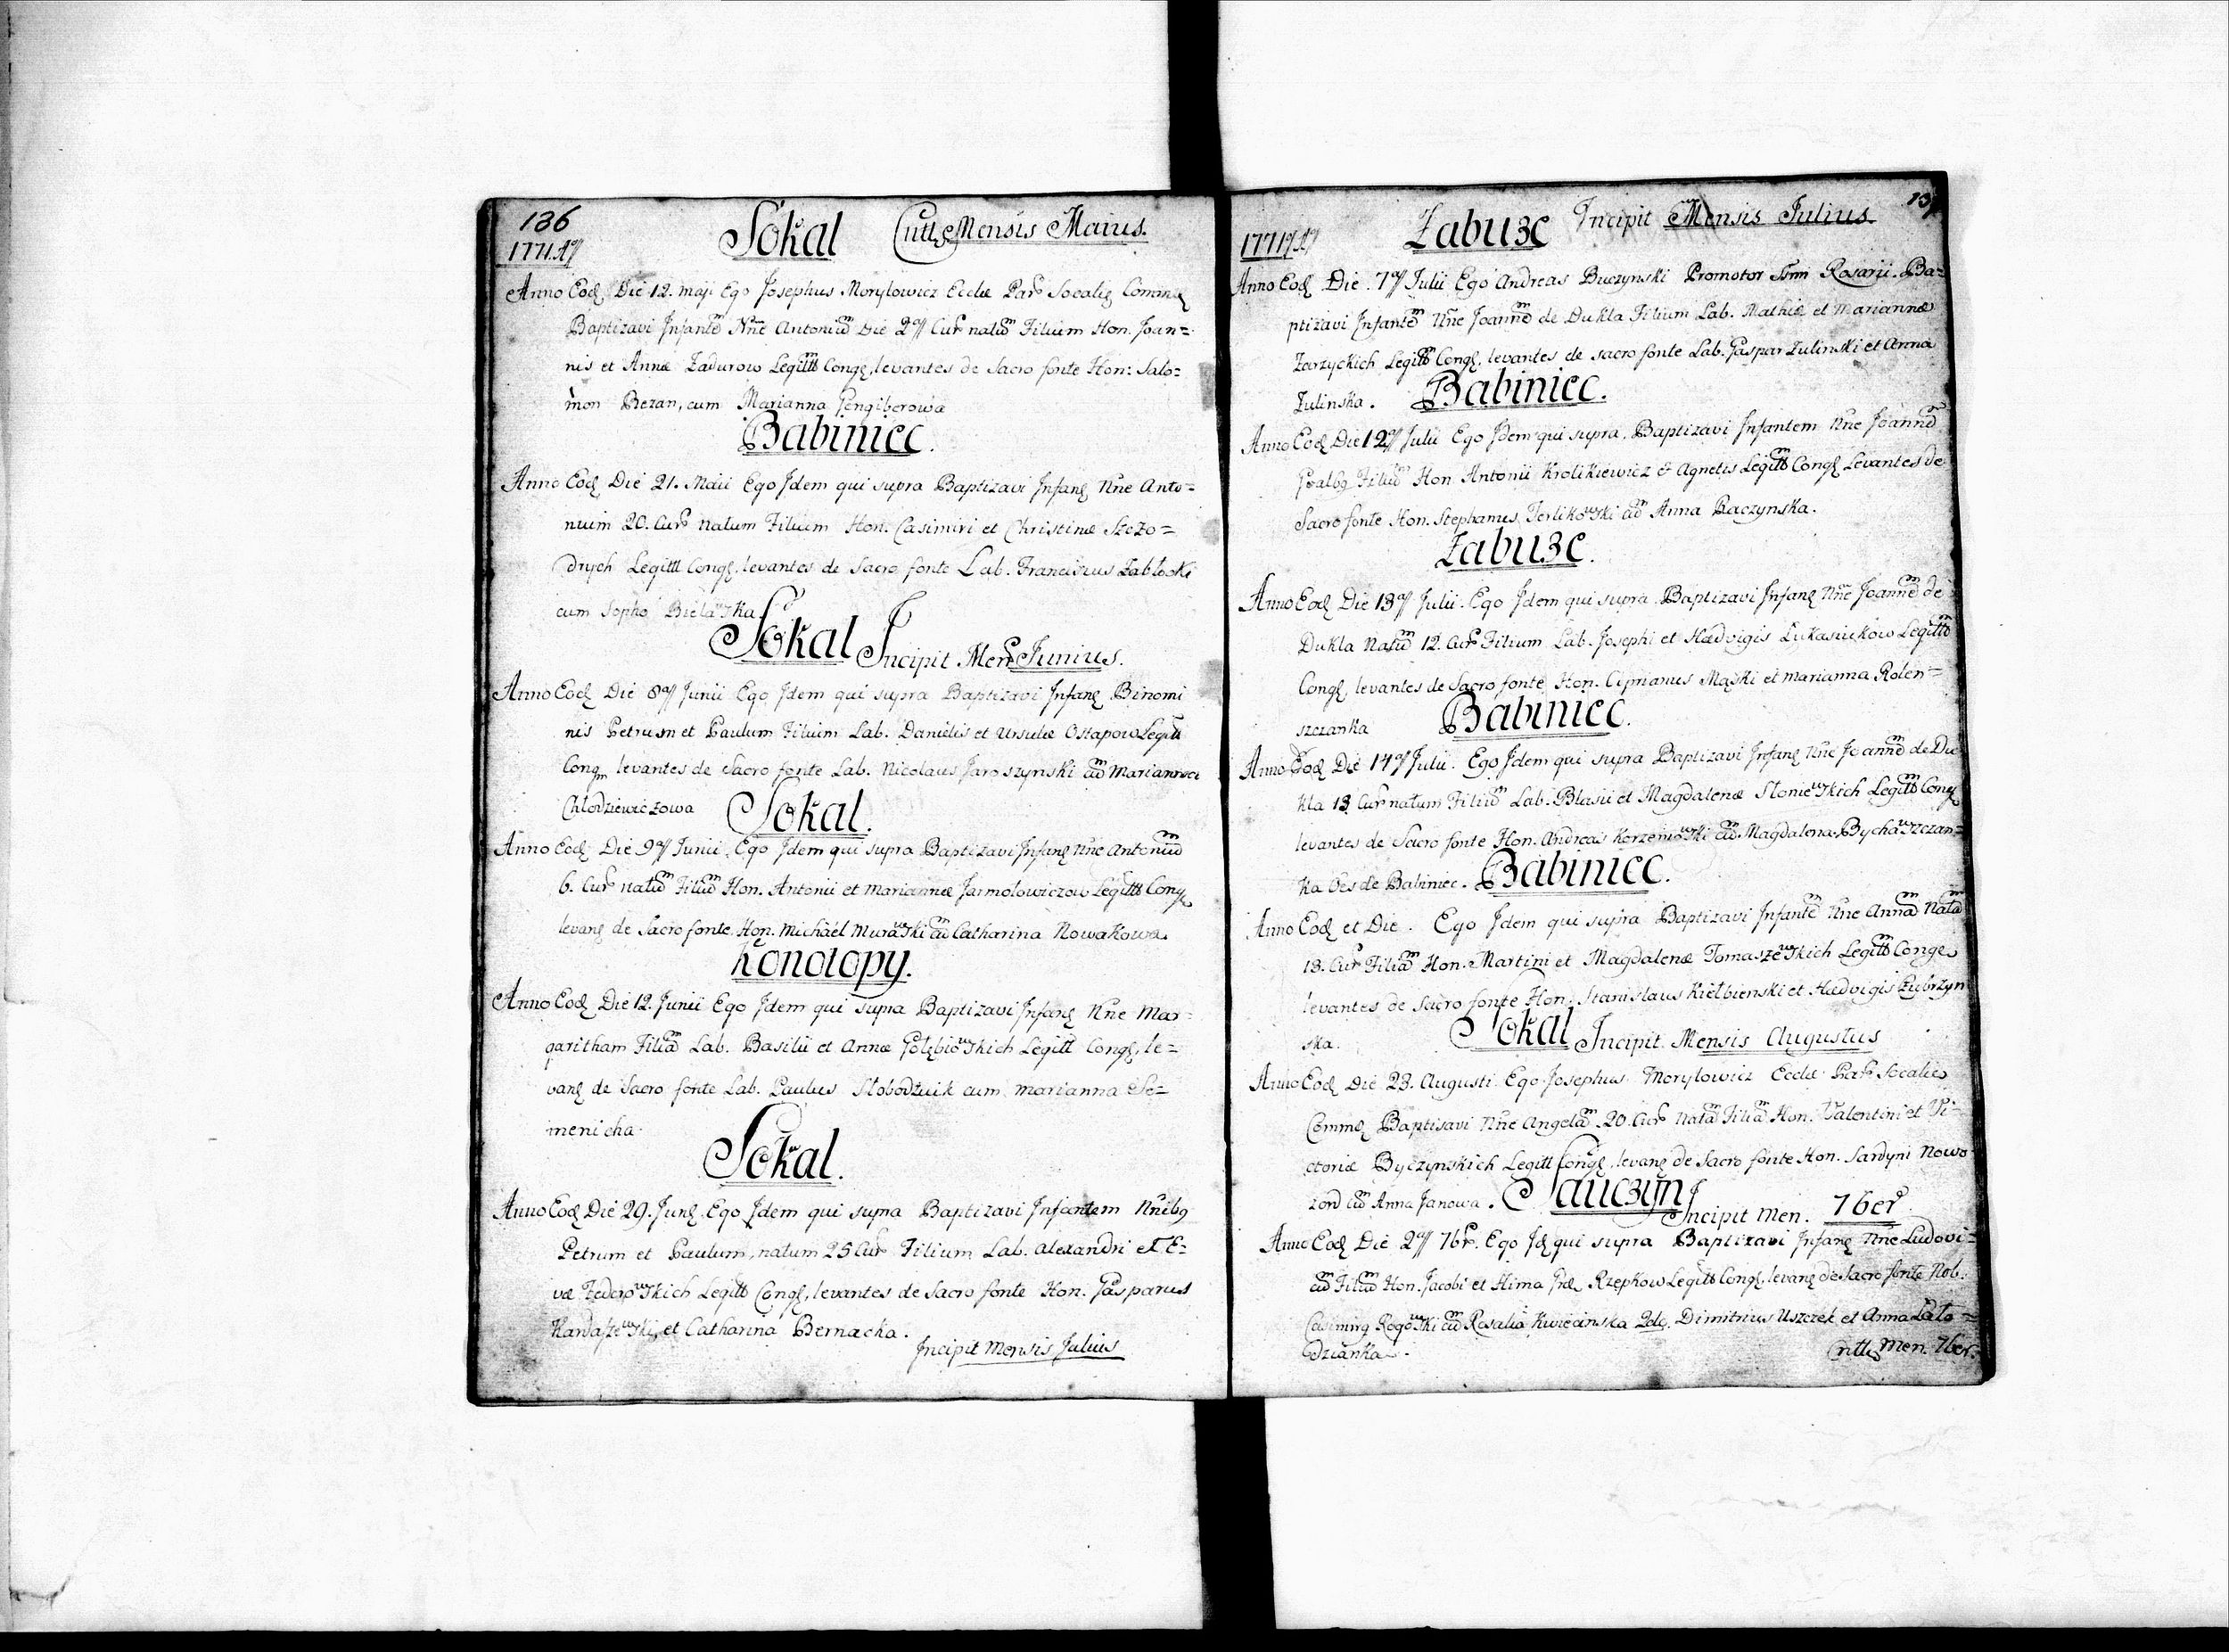 136
1771 Aº
Sokal Cntts Mensis Maius.
Anno Eod. Die 12. Maji Ego Josephus Morylowicz Eccłæ Par. Socalis Comm
Baptizavi Infantē Nñe Antoniū Die 2ª Cur natū Filium Hon. Joan=
nis et Annæ Zadurow Legittt Congg, levantes de Sacro fonte Hon: Salo=
mon Bezan, cum Marianna Gengiberowa
Babiniec.
Anno Eod Die 21. Maii Ego Idem qui supra Baptizavi Infang Nñe Anto=
nium 20. Cur natum Filium Hon. Casimiri et Christinæ Szczo=
drych Legittt Congg. levantes de Sacro fonte Lab. Franciscus Zablocki
cum Sophō Bielawska
Sokal Incipit Men Junius.
Anno Eod Die 8ª Junii Ego Idem qui supra Baptizavi Infang Binomi
nis Petrum et Paulum Filium Lab. Danielis et Ursulæ Ostapow Legitt
Congm levantes de Sacro fonte Lab. Nicolaus Jaroszynski cū Marianna
Chłodziewiczowa
Sokal.
Anno Eod Die 9ª Junii Ego Idem qui supra Baptizavi Infang Nñe Antoniū
6. Cur natū Filiū Hon. Antonii et Mariannæ Jarmolowiczow Legittt Congg
levang de Sacro fonte Hon. Michael Murawski cū Catharina Nowakowa.
Konotopy.
Anno Eod Die 12. Junii Ego Idem qui supra Baptizavi Infang Nñe Mar=
garitham Filiā Lab. Basilii et Annæ Gołębiowskich Legitt Congg, le=
vang de Sacro fonte Lab. Paulus Słobodzuik cum Marianna Se=
menicha.
Sokal.
Anno Eod Die 29. Jung. Ego Idem qui supra Baptizavi Infantem Nñibg
Petrum et Paulum, natum 25 Cur Filium Lab. Alexandri et E=
væ Federowskich Legittt Congg, levantes de Sacro fonte Hon. Gasparus
Kardaszewski, et Catharina Bernacka.
Incipit Mensis Julius
1771 Aº
Zabuze Incipit Mensis Julius
Anno Eod Die 7ª Julii Ego Andreas Buczynski Promotor Ssmi Rosarii. Ba=
ptizavi Infantē Nñe Joannē de Dukla Filium Lab. Mathiæ et Mariannæ
Zarzyckich Legittt Congg, levantes de sacro fonte Lab. Gaspar Zulinski et Anna
Zulinska.
Babiniec.
Anno Eod Die 12ª Julii Ego Idem qui supra, Baptizavi Infantem Nñe Joannē
Gvalbg Filiū Hon Antonii Krolikiewicz & Agnetis Legittt Congg Levantes de
Sacro fonte Hon. Stephanus Terlikowski cū Anna Raczynska.
Zabuze.
Anno Eod Die 13ª Julii. Ego Idem qui supra Baptizavi Infang Nñe Joannē de
Dukla Natū 12. Cur Filium Lab. Josephi et Hædvigis Lukasiukow Legittt
Congg, levantes de Sacro fonte Hon. Ciprianus Mąski et Marianna Rolen=
szczanka
Babiniec.
Anno Eod Die 14ª Julii. Ego Idem qui supra Baptizavi Infang Nñe Joannē de Du
kla 13 Cur natum Filiū Lab. Blasii et Magdalenæ Słoniewskich Legittt Congg
levantes de Sacro fonte Hon. Andreas Korzeniowski cū. Magdalena Bychawszczan=
ka Oēs de Babiniec.
Babiniec.
Anno Eod et Die. Ego Idem qui supra Baptizavi Infantē Nñe Annā Natā
13. Cur Filiā Hon. Martini et Magdalenæ Tomaszewskich Legittt Congg
levantes de Sacro fonte Hon. Stanislaus Kiełbienski et Hædvigis Zubrzyn
ska.
Sokal Incipit Mensis Augustus
Anno Eod Die 23. Augusti Ego Josephus Morylowicz Eccłæ Par Socalis
Commg Baptisavi Nñe Angelā 20. Cur Natā Filiā Hon. Valentini et Vi=
ctoriæ Byczynskich Legittt Congg, levang de Sacro fonte Hon. Sardyni Nowo
zord cū Anna Janowa.
Sauczyn Incipit Men. 7ber.
Anno Eod Die 2ª 7br. Ego Id qui supra Baptizavi Infang Nñe Ludovi=
cū Filiū Hon. Jacobi et Rzepkow Legittt Congg, levang de Sacro fonte Nob.
Casimirg Rogowski cū Rosalia Kwiecinska Dimitrius Uszczek et Anna Lało=
dzianka.
Cntts Men. 7ber.